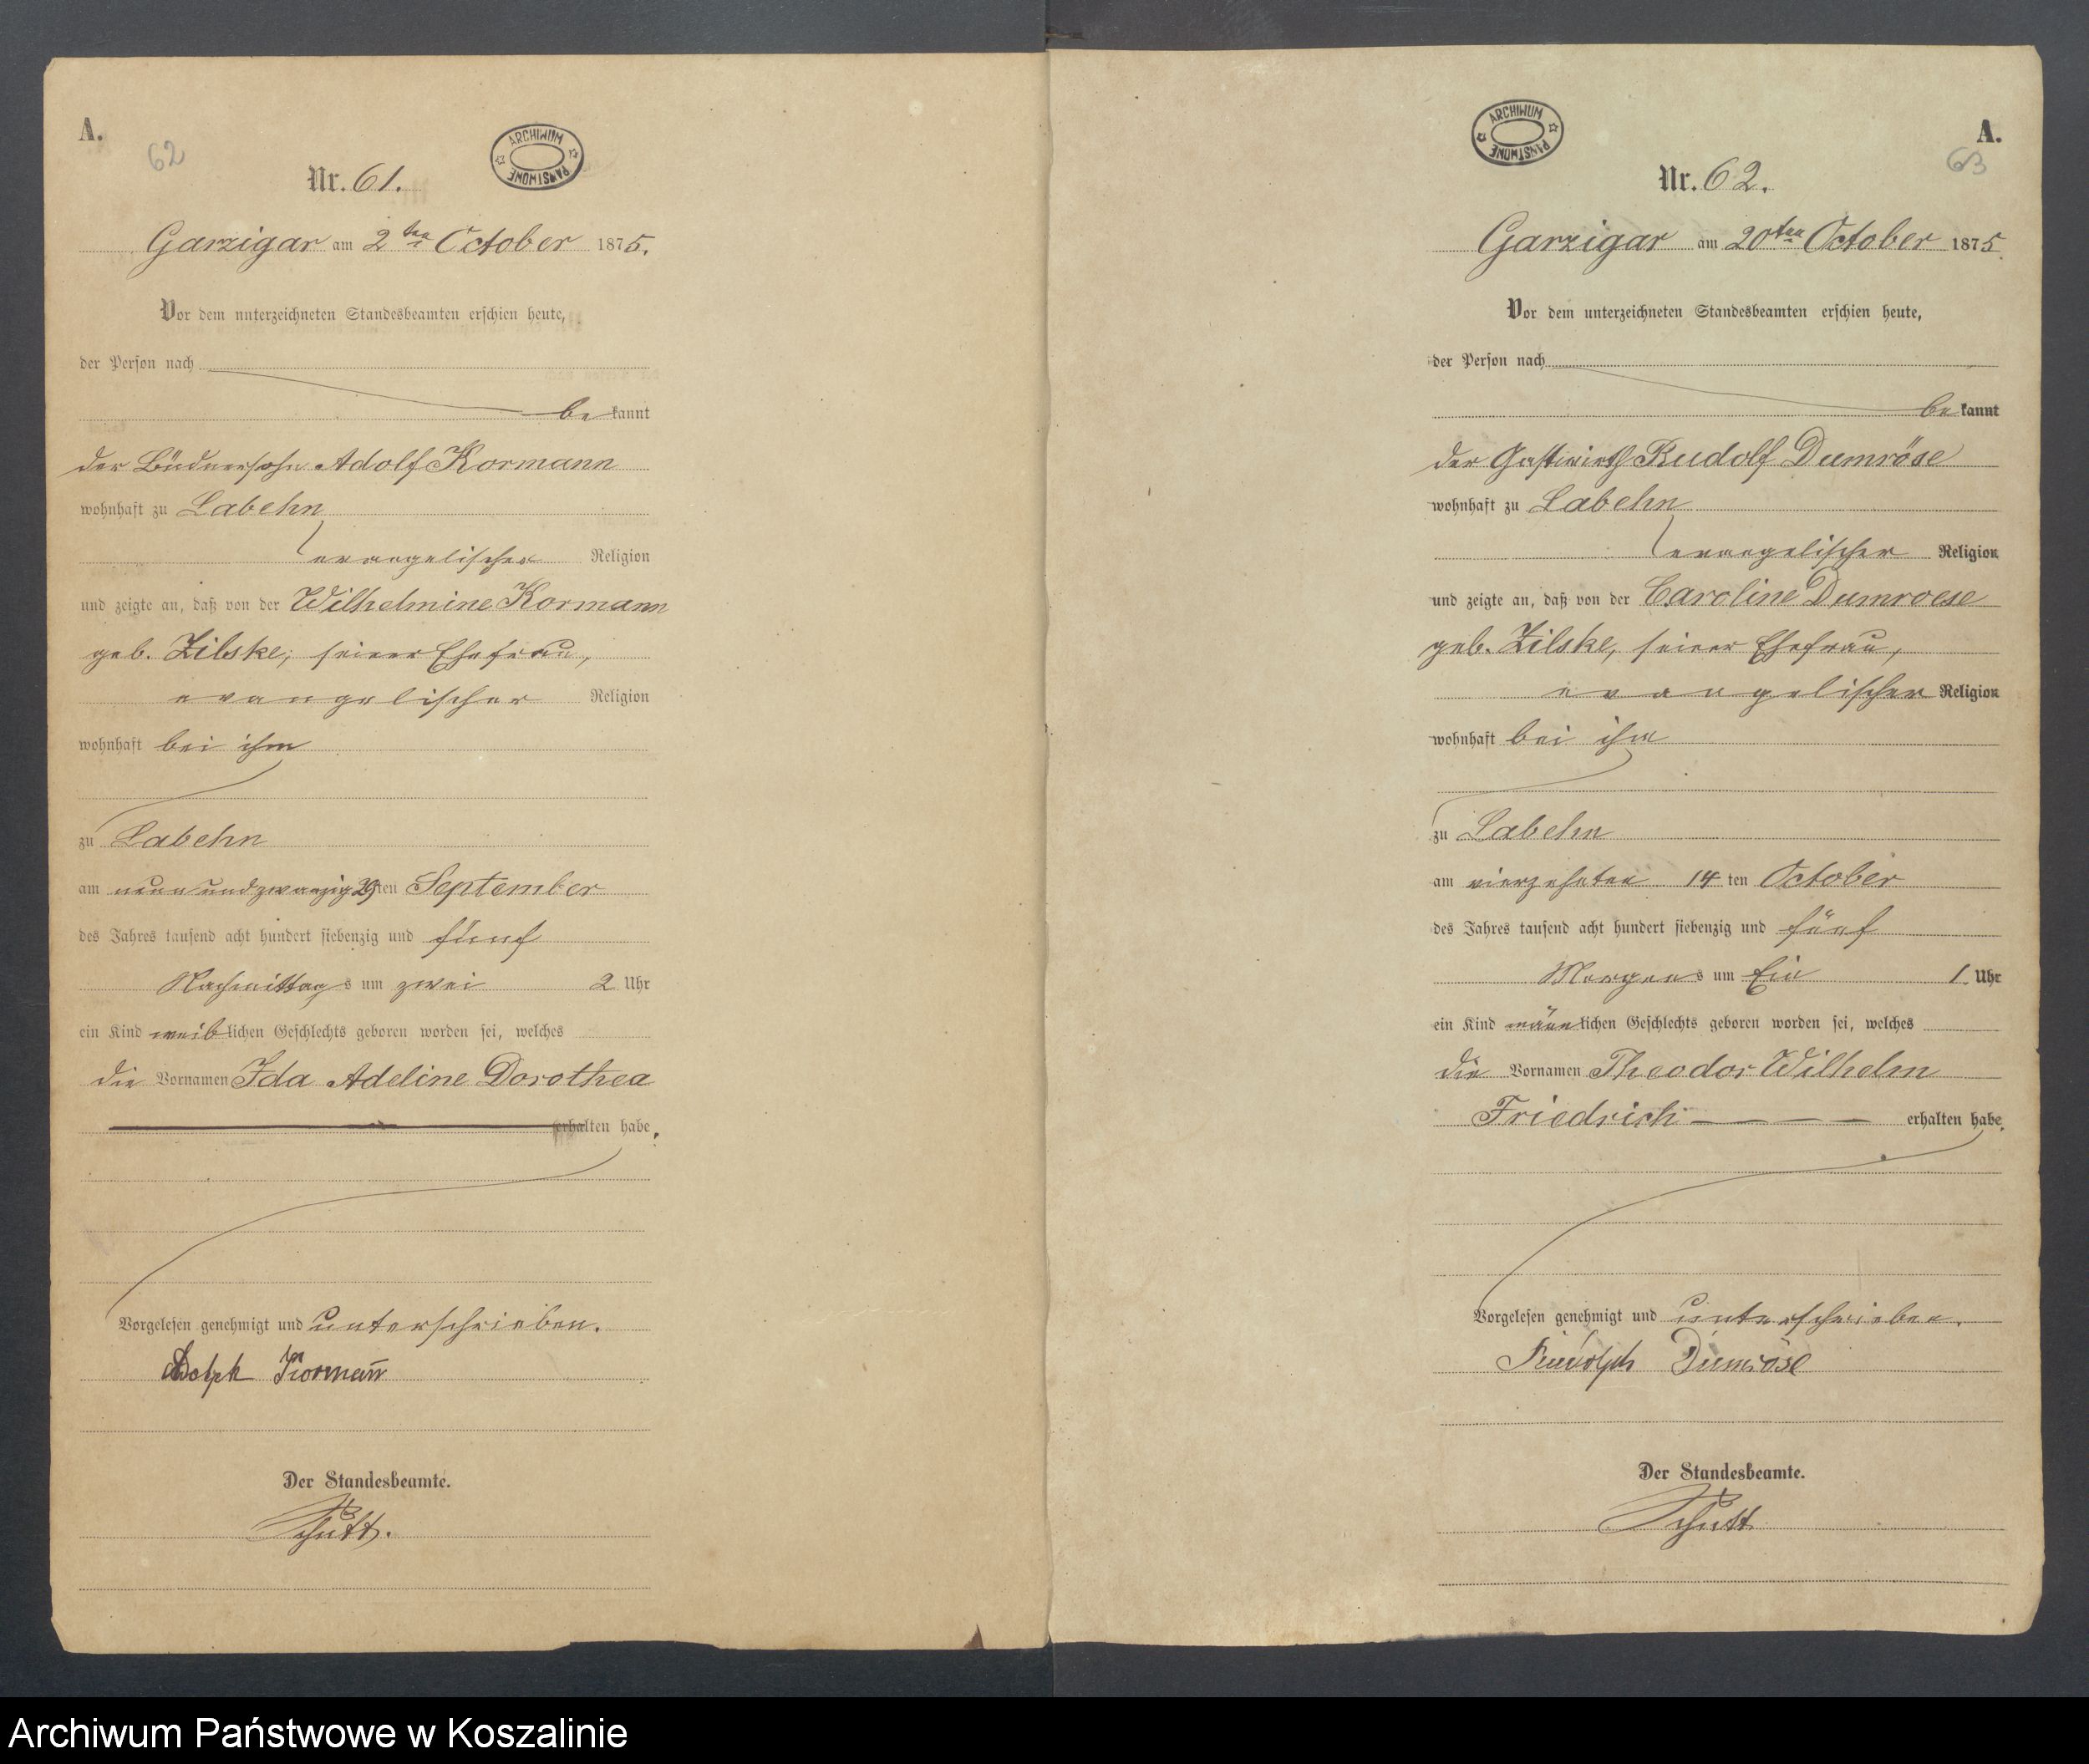 A.
62
ARCHIWUM PAŃSTWOWE
Nr. 61.
Garzigar am 2ten October 1875.
Vor dem unterzeichneten Standesbeamten erschien heute,
der Person nach
bekannt
der Büdnersohn Adolf Kormann
wohnhaft zu Labehn
evangelischer Religion
und zeigte an, daß von der Wilhelmine Kormann
geb. Zilske, seiner Ehefrau,
evangelischer Religion
wohnhaft bei ihm
zu Labehn
am neunundzwanzig 29ten September
des Jahres tausend acht hundert siebenzig und fünf
Nachmittags um zwei 2 Uhr
ein Kind weiblichen Geschlechts geboren worden sei, welches
die Vornamen Ida Adeline Dorothea
erhalten habe.
Vorgelesen genehmigt und unterschrieben.
Adolph Kormann
Der Standesbeamte.
Schütt.
ARCHIWUM PAŃSTWOWE
A.
63
Nr. 62.
Garzigar am 20ten October 1875.
Vor dem unterzeichneten Standesbeamten erschien heute,
der Person nach
bekannt
der Gastwirth Rudolf Dumröse
wohnhaft zu Labehn
evangelischer Religion
und zeigte an, daß von der Caroline Dumroese
geb. Zilske, seiner Ehefrau,
evangelischer Religion
wohnhaft bei ihm
zu Labehn
am vierzehnten 14ten October
des Jahres tausend acht hundert siebenzig und fünf
Morgens um Ein 1 Uhr
ein Kind männlichen Geschlechts geboren worden sei, welches
die Vornamen Theodor Wilhelm
Friedrich erhalten habe.
Vorgelesen genehmigt und unterschrieben.
Rudolph Dumröse
Der Standesbeamte.
Schütt
Archiwum Państwowe w Koszalinie